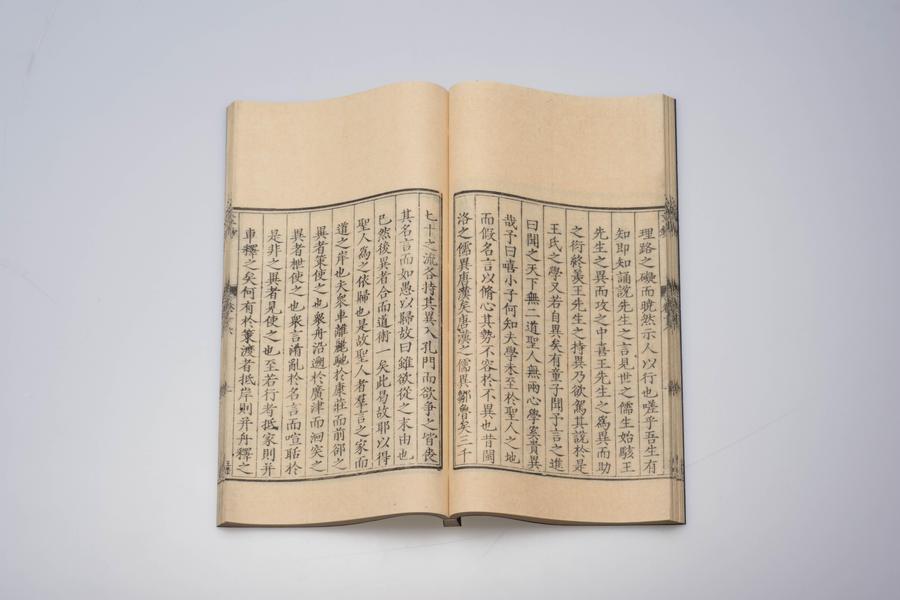 理路之礙而曉然示人以行也嗟乎吾生有
知即知誦說先生之言見世之儒生始駭王
先生之異而攻之中喜王先生之為異而助
之衒終羨王先生之持異乃欲駕其說於是
王氏之學又若自異矣有童子聞予言之進
曰聞之天下無二道聖人無兩心學奚貴異
哉予曰嘻小子何知夫學未至於聖人之地
而假名言以脩心其勢不容於不異也昔閩
洛之儒異唐漢矣唐漢之儒異鄒魯矣三千
七十之流各持其異入孔門而欲爭之皆喪
其名言而如愚以歸故曰雖欲從之末由也
已然後異者合而道術一矣此曷故耶以得
聖人為之依歸也是故聖人者羣言之家而
道之岸也夫衆車離麗馳於康莊而前郤之
異者策使之也衆舟沿遡於廣津而洄突之
異者枻使之也衆言淆亂於名言而喧聒於
是非之異者見使之也至若行者抵家則并
車釋之矣何有於策渡者抵岸則并舟釋之